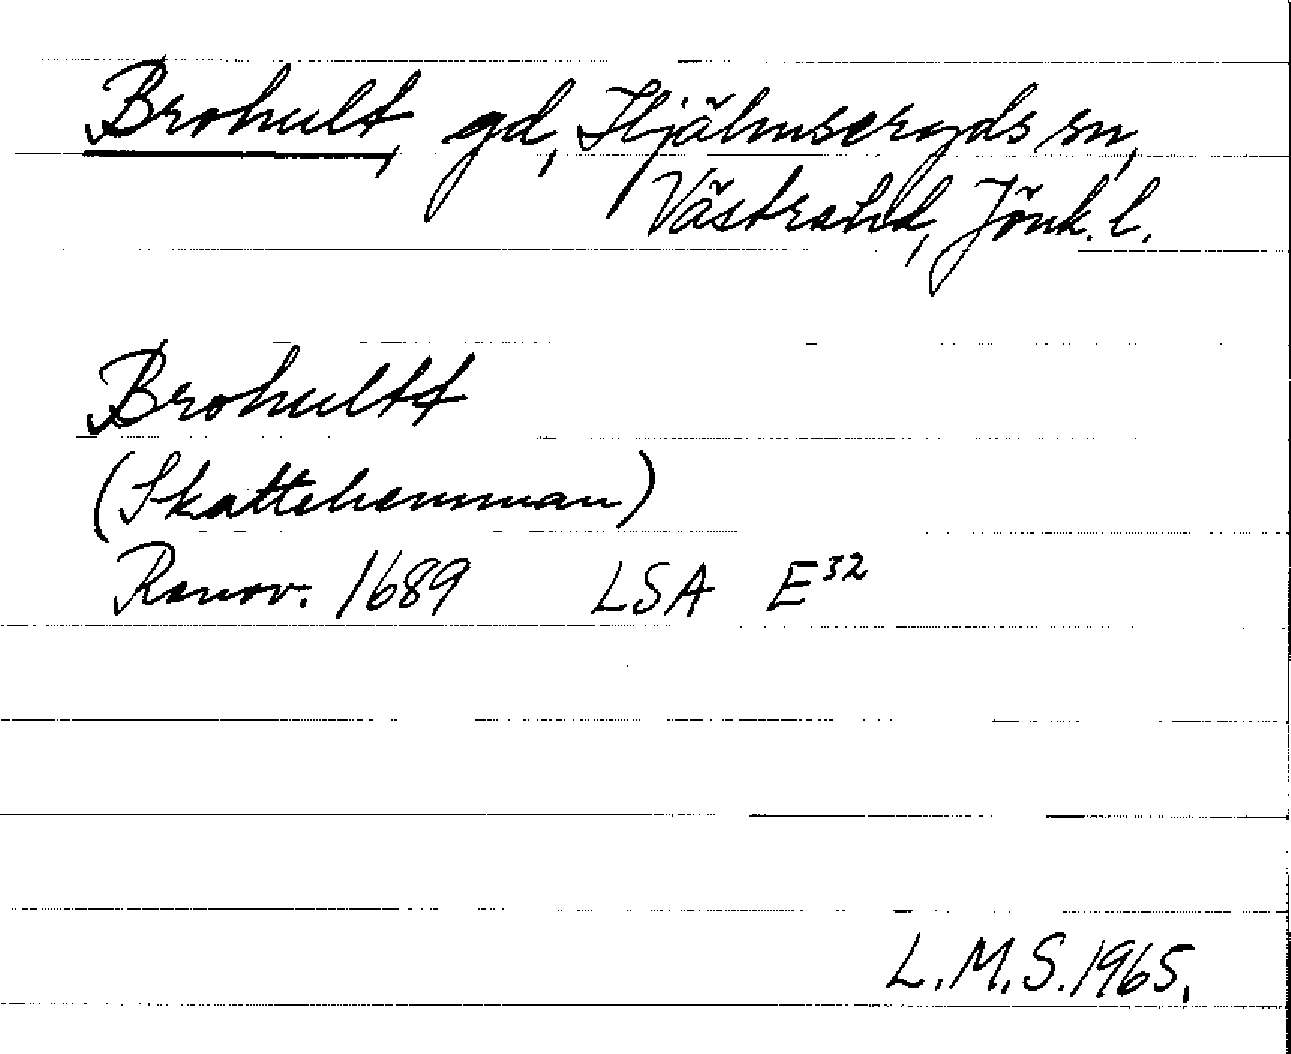 Brohult, gd, Hjälmseryds sn,
Västra hd, Jönk. l.
Brohultt
(Skattehemman)
Renov. 1689 LSA E³²
L.M.S. 1965.